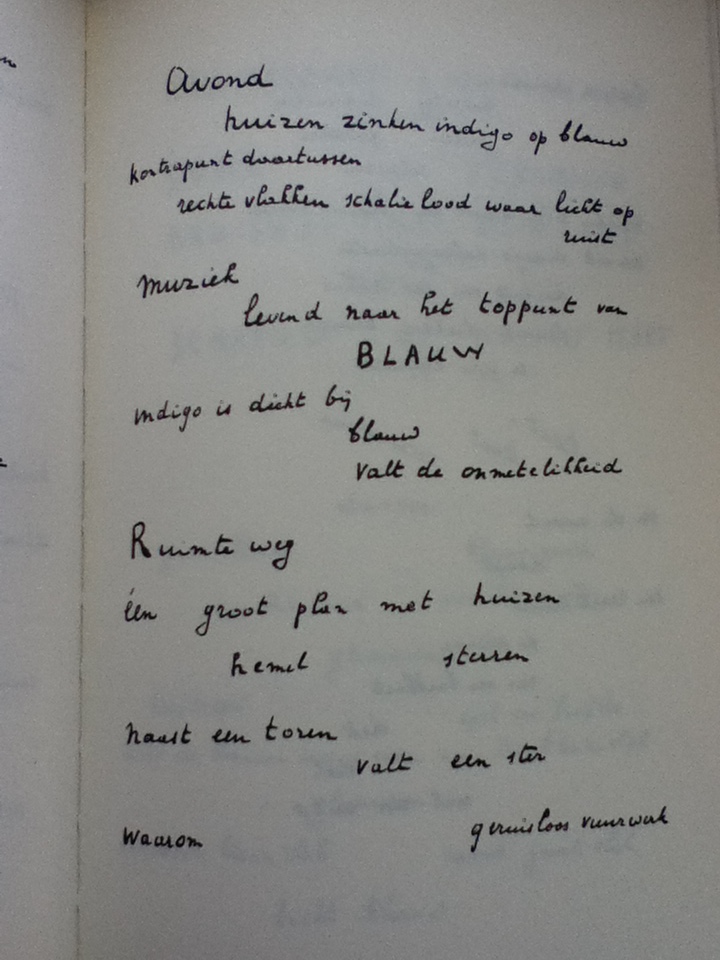 Avond
huizen zinken indigo op blauw
kontrapunt daartussen
rechte vlakken schalie lood waar licht op
rust
Muziek
levend naar het toppunt van
BLAUW
indigo is dicht bij
blauw
valt de onmetelikheid
Ruimte weg
één groot plan met huizen
hemel sterren
naast een toren
valt een ster
Waarom geruisloos vuurwerk